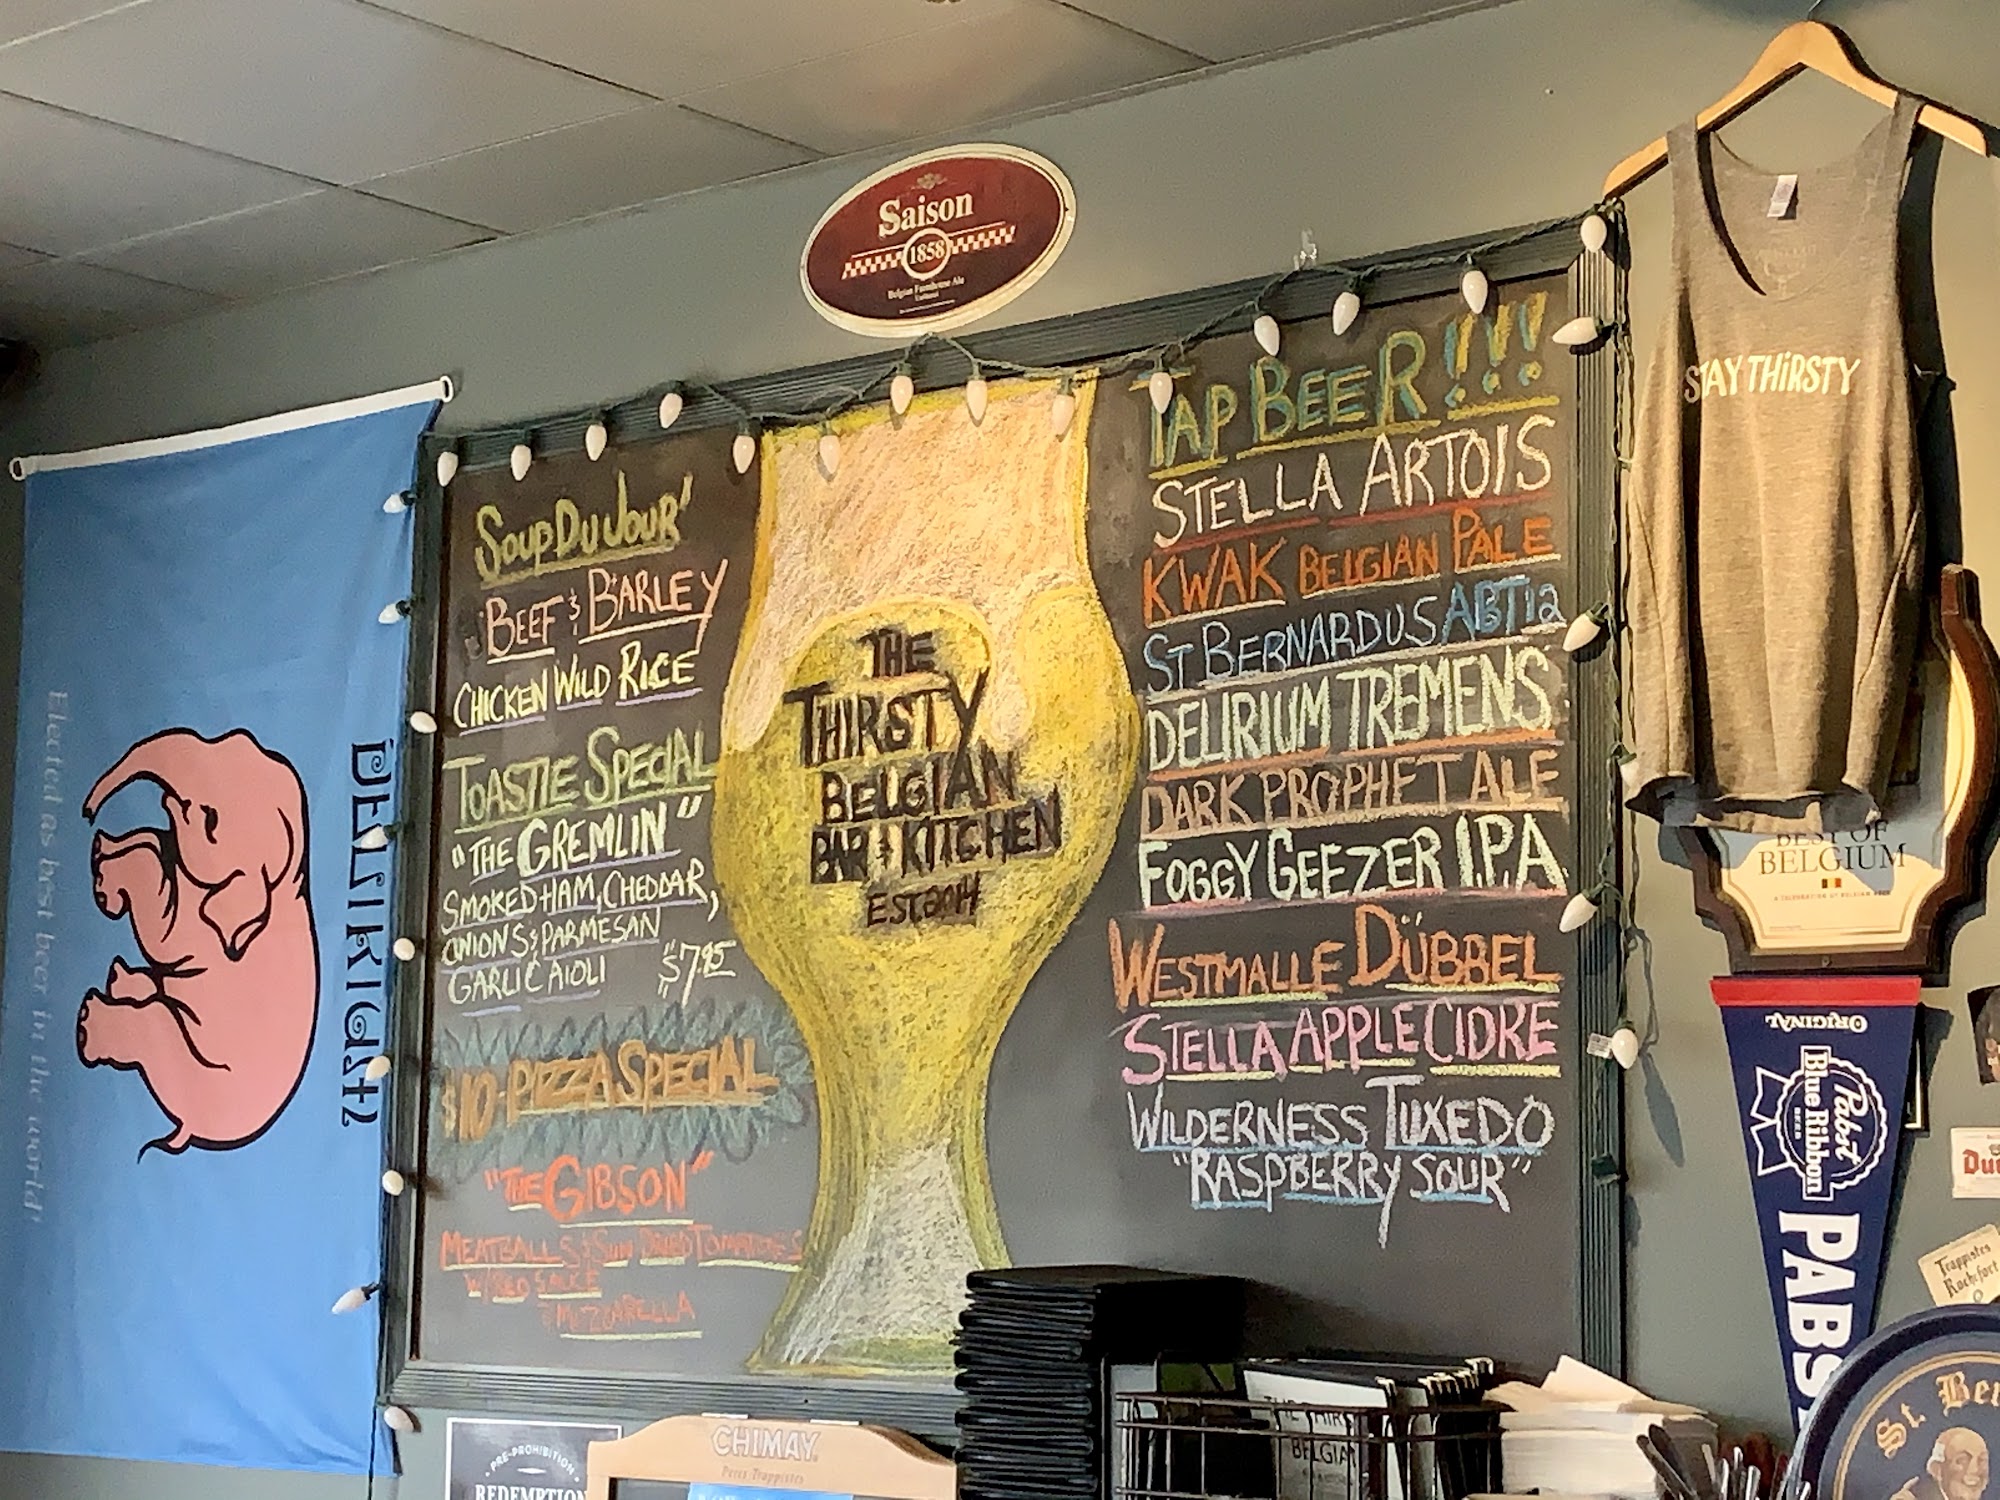 Saison
1858
Belgian Farmhouse Ale
DELIRIUM
Elected as best beer in the world!
SOUP DU JOUR'
BEEF & BARLEY
CHICKEN WILD RICE
TOASTIE SPECIAL
"THE GREMLIN"
SMOKED HAM, CHEDDAR,
ONIONS & PARMESAN
GARLIC AIOLI $7.95
$10-PIZZA SPECIAL
"THE GIBSON"
MEATBALLS & SUN DRIED TOMATOES
W/ RED SAUCE
& MOZZARELLA
THE
THIRSTY
BELGIAN
BAR & KITCHEN
EST 2014
TAP BEER!!!
STELLA ARTOIS
KWAK BELGIAN PALE
ST BERNARDUS ABT 12
DELIRIUM TREMENS
DARK PROPHET ALE
FOGGY GEEZER I.P.A
WESTMALLE DÜBBEL
STELLA APPLE CIDRE
WILDERNESS TUXEDO
"RASPBERRY SOUR"
STAY THIRSTY
BEST OF
BELGIUM
A CELEBRATION OF BELGIAN BEER
ORIGINAL
Pabst
Blue Ribbon
BEER
PABS
Du
Trappistes
Rochefort
St. Be
CHIMAY
Peres Trappistes
PRE-PROHIBITION
REDEMPTION
THE THIRS
BELGIA